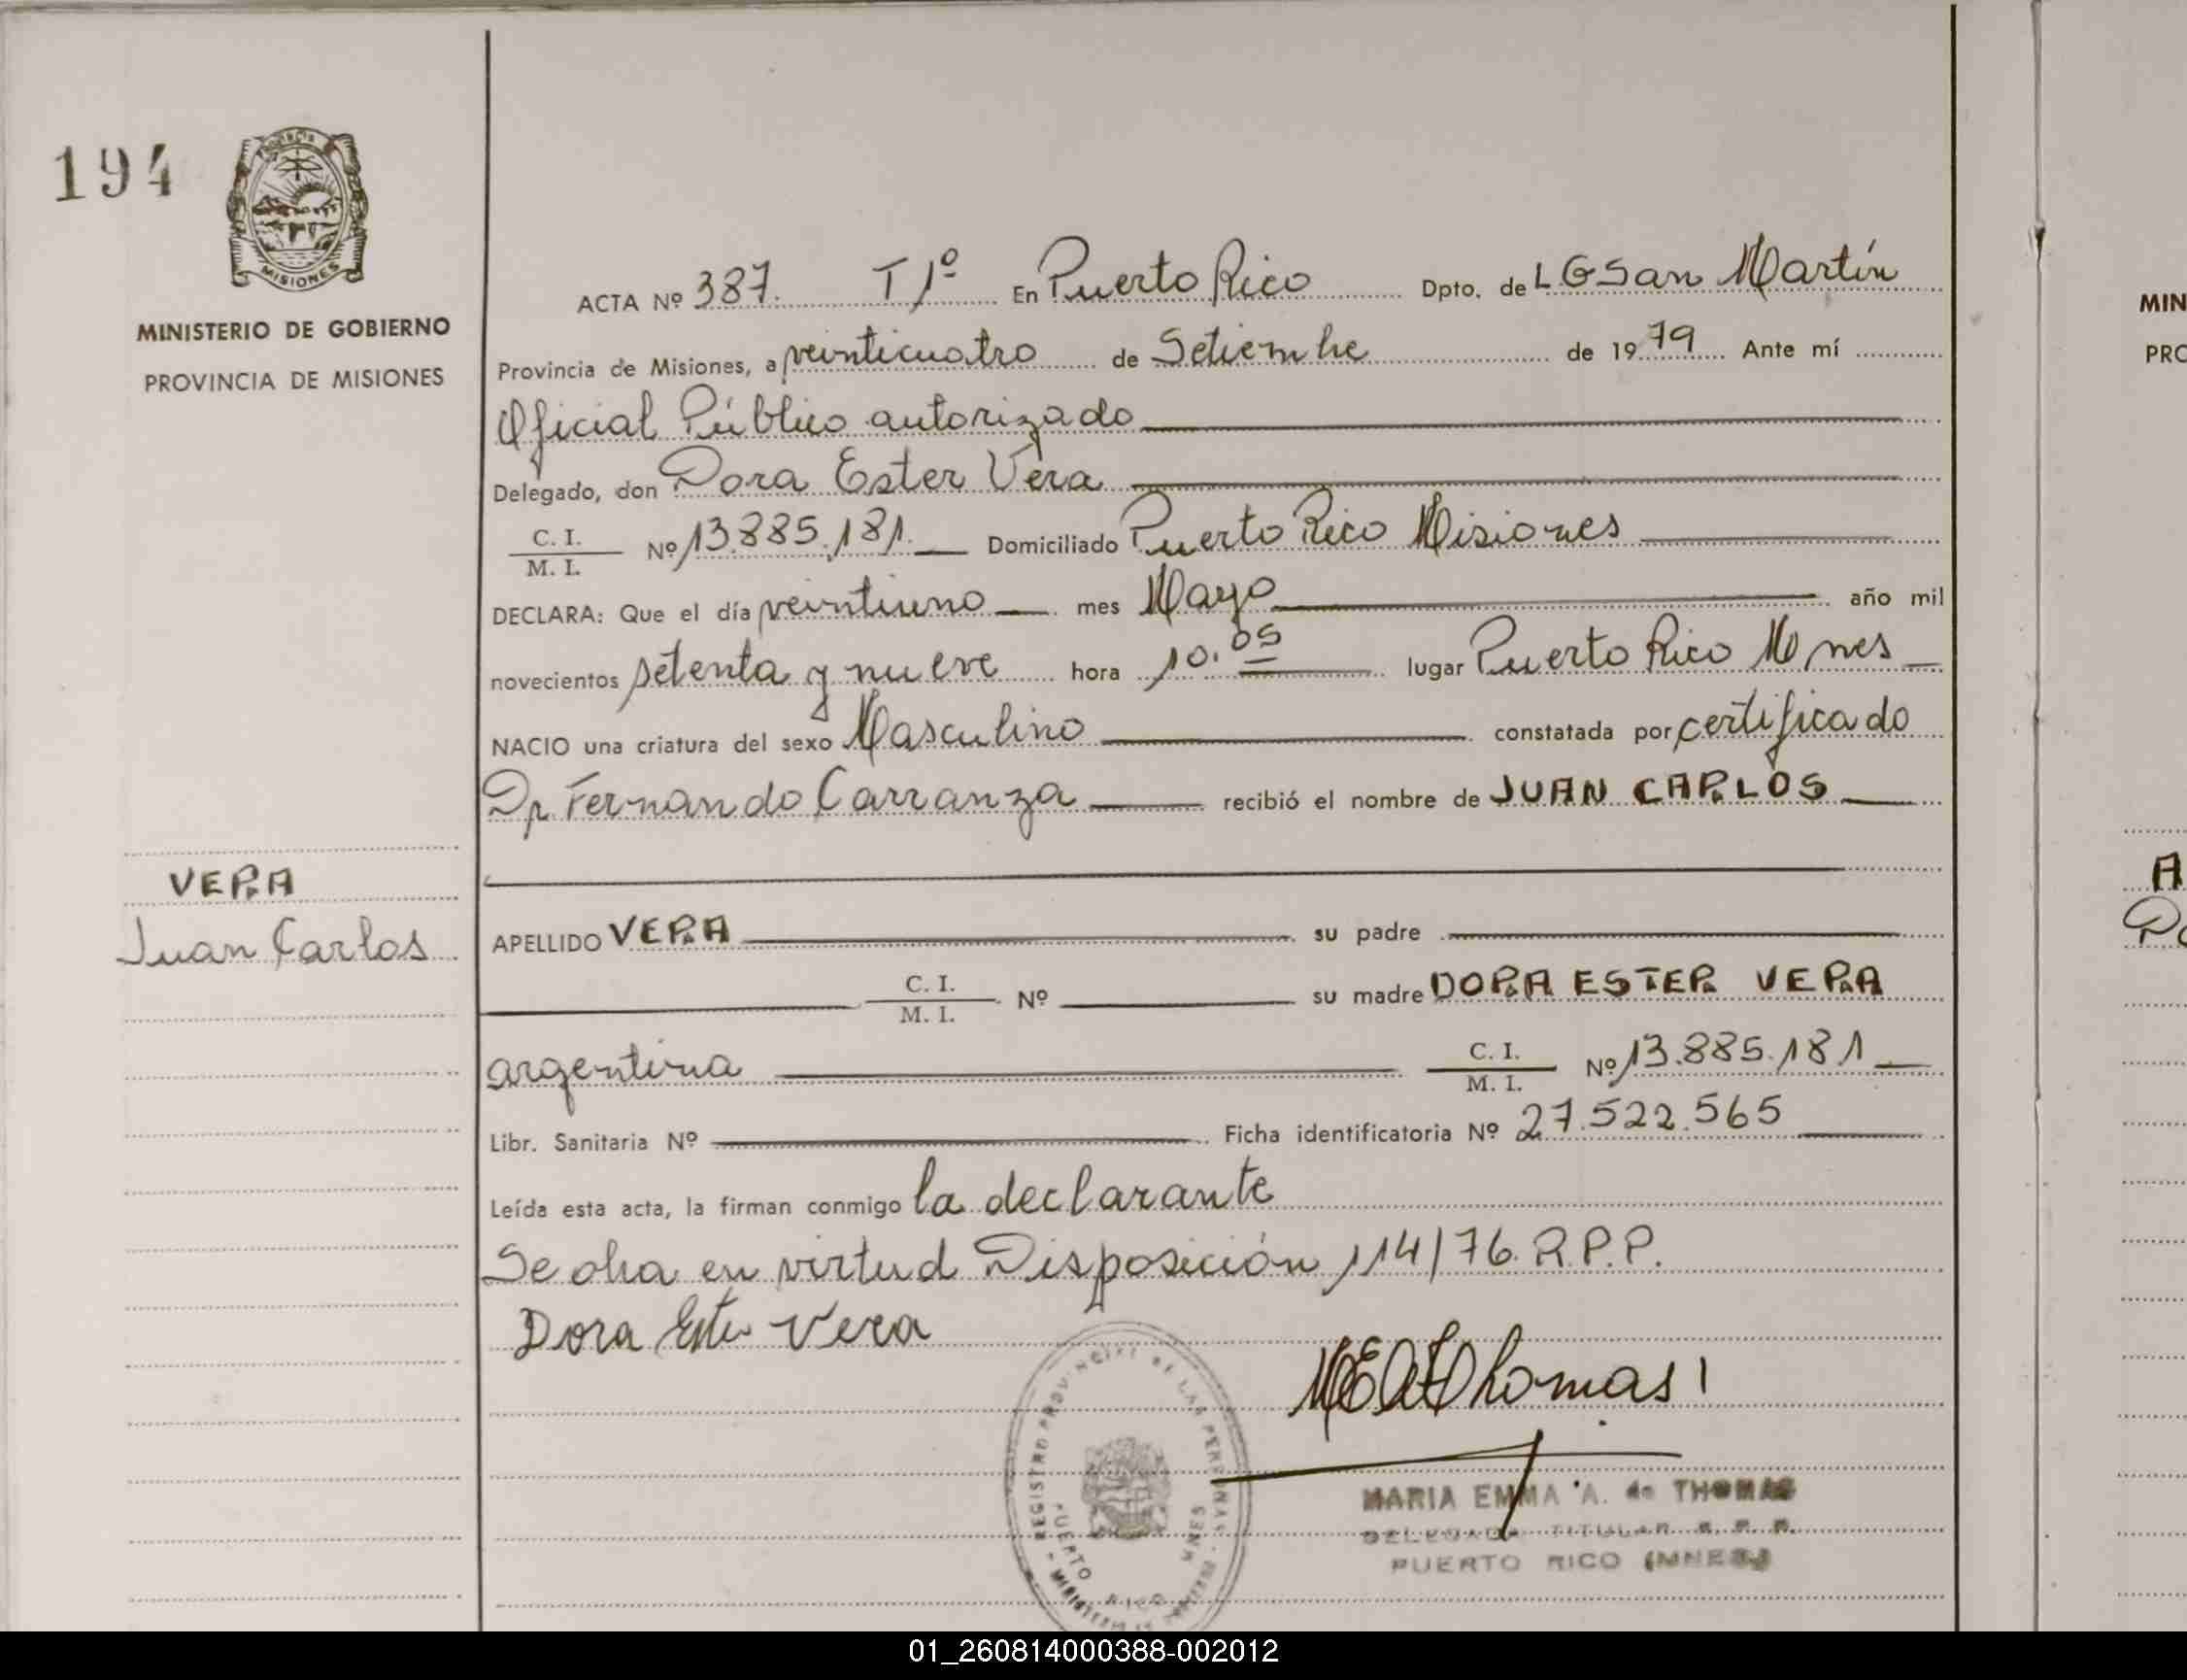 194
PROVINCIA
MISIONES
MINISTERIO DE GOBIERNO
PROVINCIA DE MISIONES
VERA
Juan Carlos
ACTA Nº 387. T 1º En Puerto Rico Dpto. de L G San Martín
Provincia de Misiones, a veinticuatro de Setiembre de 1979 Ante mí
Oficial Público autorizado
Delegado, don Dora Ester Vera
C. I.
M. I. Nº 13.885.181. Domiciliado Puerto Rico Misiones
DECLARA: Que el día veintiuno mes Mayo año mil
novecientos setenta y nueve hora 10.05 lugar Puerto Rico Mnes
NACIO una criatura del sexo Masculino constatada por certificado
Dr. Fernando Carranza recibió el nombre de JUAN CARLOS
APELLIDO VERA su padre
C. I.
M. I. Nº su madre DORA ESTER VERA
argentina C. I.
M. I. Nº 13.885.181
Libr. Sanitaria Nº Ficha identificatoria Nº 27.522.565
Leída esta acta, la firman conmigo la declarante
Se en virtud Disposición 114/76 R.P.P.
Dora Ester Vera
Thomas
REGISTRO PROVINCIAL DE LAS PERSONAS
PUERTO RICO MNES
MINISTERIO DE GOBIERNO
MARIA EMMA A. de THOMAS
DELEGADA TITULAR R. P. P.
PUERTO RICO (MNES)
MIN
PRO
A
01_260814000388-002012